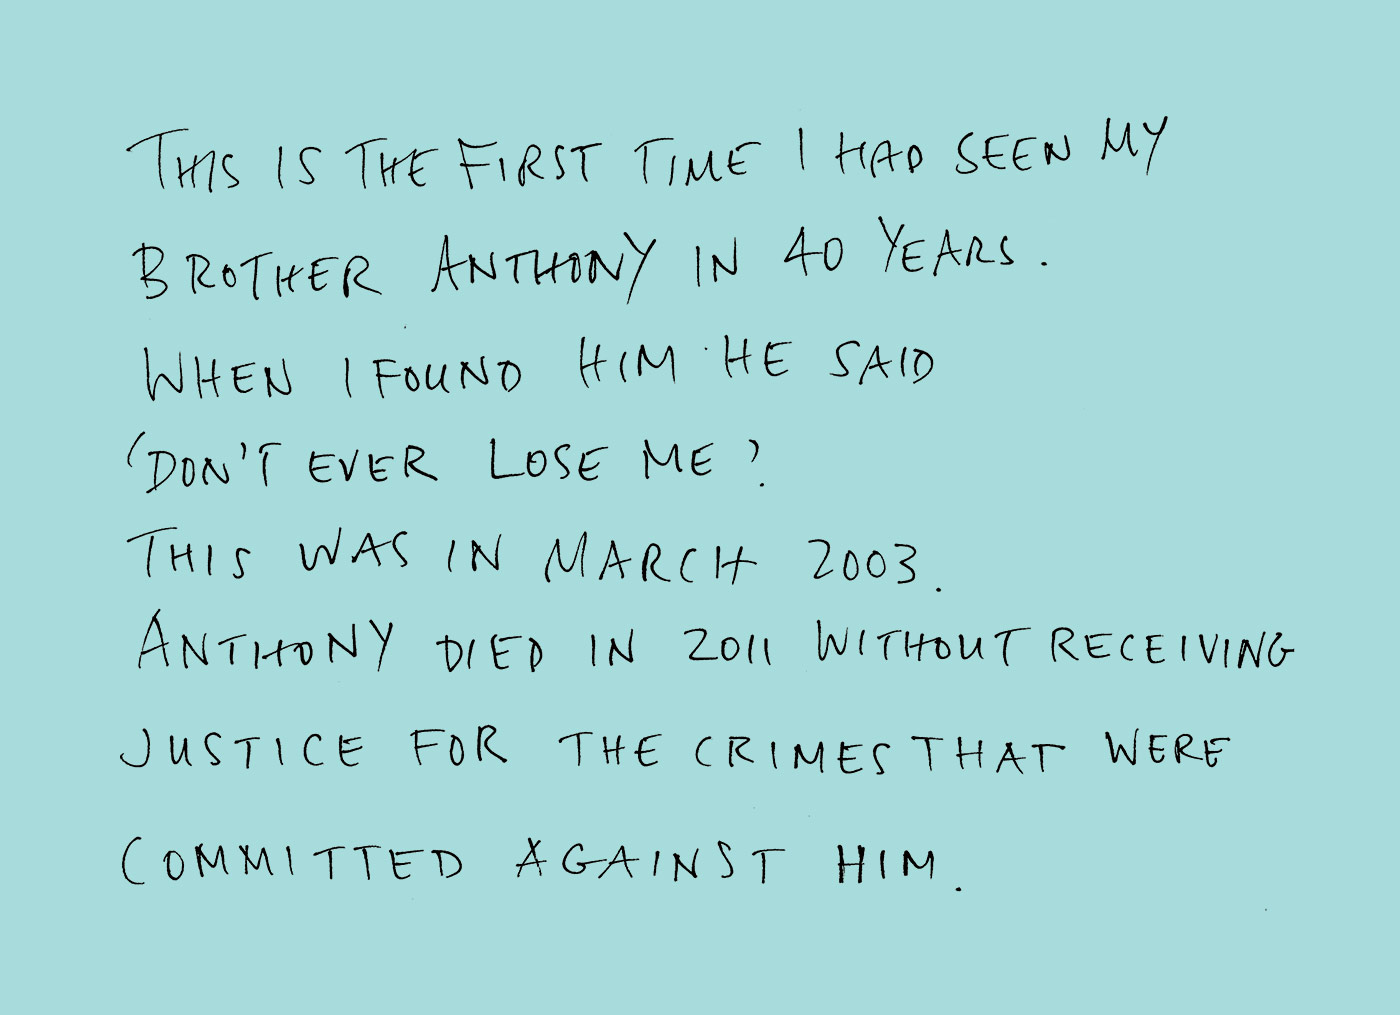 THIS IS THE FIRST TIME I HAD SEEN MY
BROTHER ANTHONY IN 40 YEARS.
WHEN I FOUND HIM HE SAID
'DON'T EVER LOSE ME'.
THIS WAS IN MARCH 2003.
ANTHONY DIED IN 2011 WITHOUT RECEIVING
JUSTICE FOR THE CRIMES THAT WERE
COMMITTED AGAINST HIM.